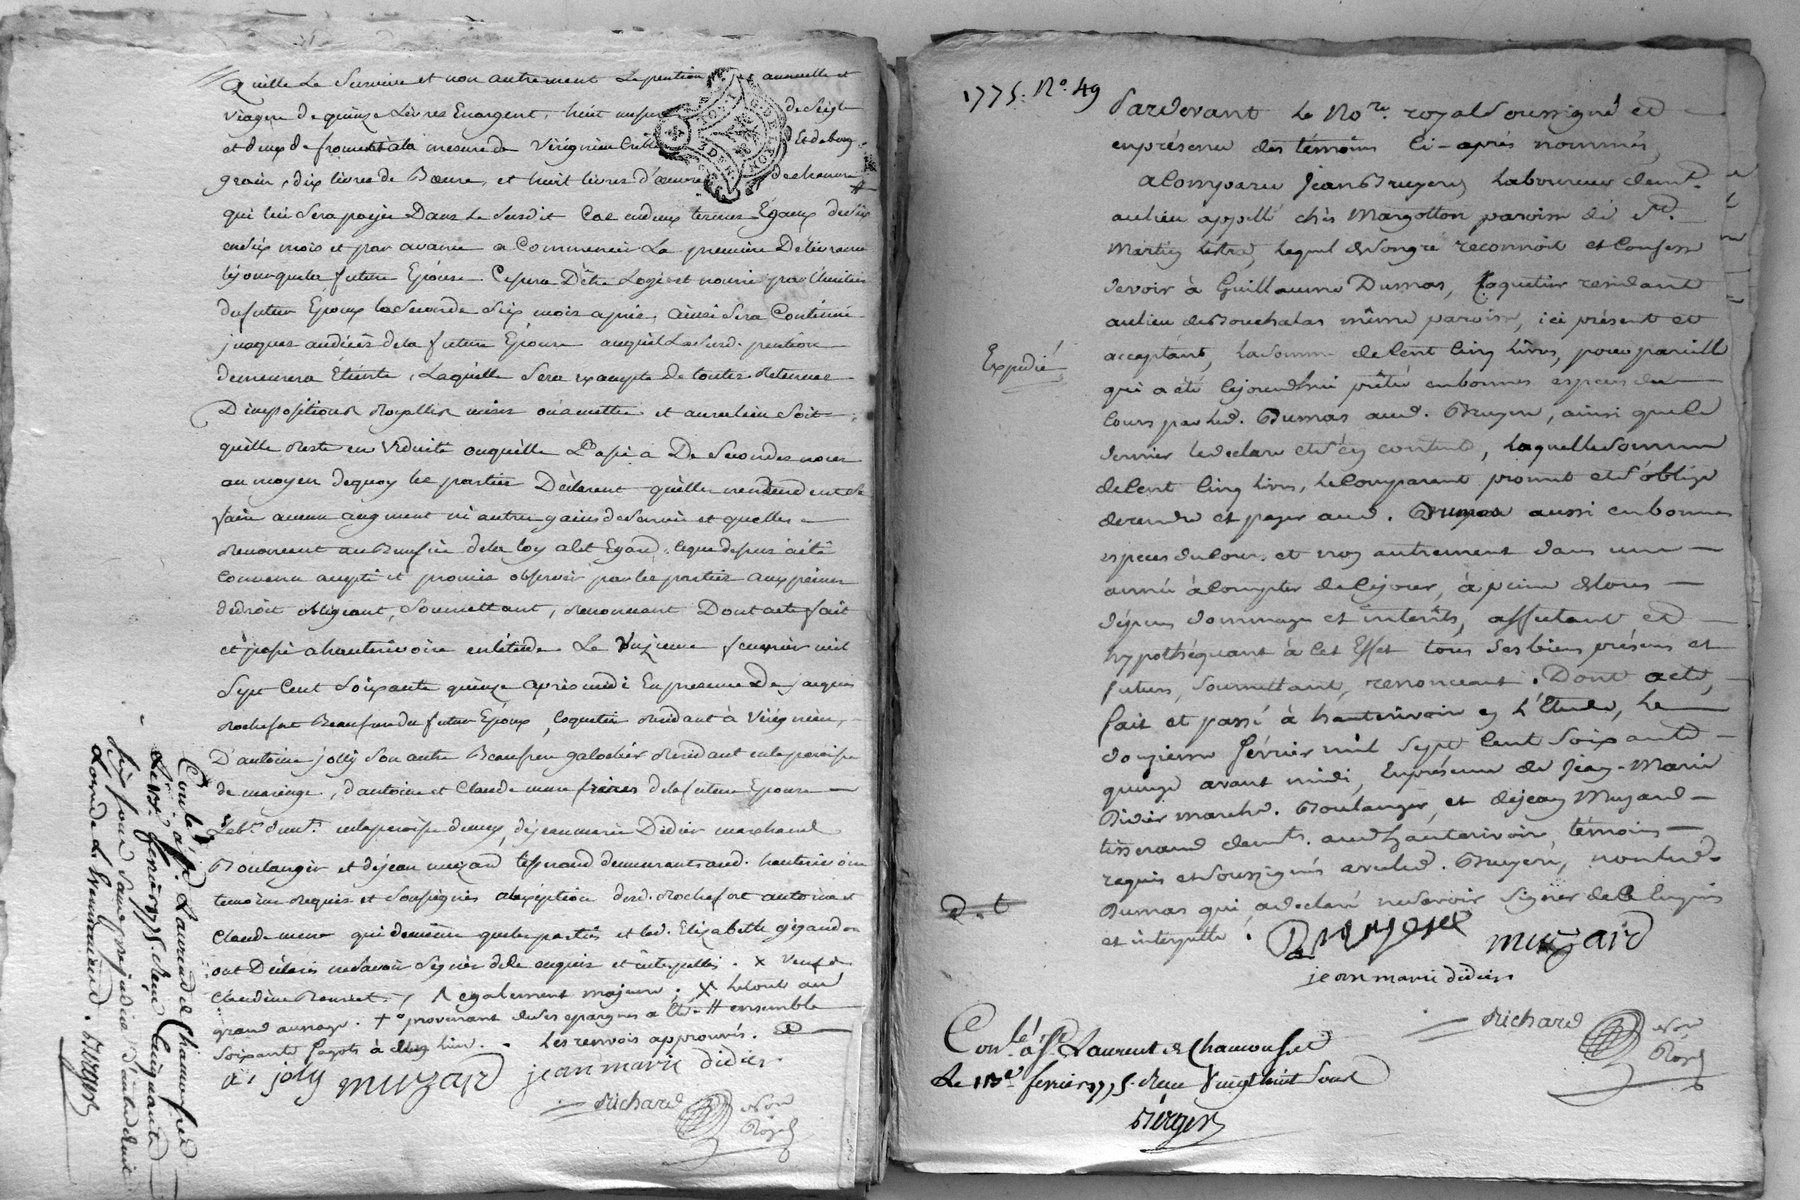 qu'elle le survive et non autrement la pention annuelle et
viagere de quinze Livres En argent, huit mesures de seigle
et deux de froment à la mesure de Vérignieu
grain, dix livres de Beurre, et huit livres d'œuvre de chanvre
qui lui sera payée Dans le susdit Cas en deux termes Egaux de six
en six mois et par avance a Commencer La premiere Délivrance
la future Epouse Cessera D'être Logée et nourie par
du futur Epoux la seconde six mois après, ainsi sera Continué
jusques au décès de la future Epouse auquel La susd. pention
demeurera Éteinte, Laquelle sera exempte de toutes Retenues
D'impositions Royalles mises ou a mettre et aura lieu soit
qu'elle Reste en viduité ou qu'elle Passe a De secondes noces
au moyen de quoy les parties Déclarent qu'elles n'entendent se
faire aucun augment ni autres gains de survie et qu'elles
Renoncent au Benefice de la loy a cet Egard. ce que dessus a été
convenu accepté et promis observer par les parties aux peines
de droit obligeant, soumettant, Renonceant Dont acte fait
et passé a hauterivoire en l'étude Le onzieme fevrier mil
Sept Cent Soixante quinze après midi En presence De jacques
Rochefort Beaufrere du futur Epoux, Coquetier Residant à Vérignieu,
D'antoine jolly son autre Beaufrere galochier Residant en la paroisse
de maringe, d'antoine et Claude mure freres de la future Epouse
Lab.rs dem.ts en la paroisse de meys, de jean marie Didier marchand
Boulanger et de jean muzard tisserand demeurants aud. hauterivoire
temoins Requis et soussignés a l'exception desd. Rochefort antoine et
Claude mure qui de même que les parties et lad. Elizabeth
ont Déclaré ne savoir signer de ce enquis et interpellés. x veuf de
Claudine également majeure. x le tout au
grand aunage. + provenant de ses epargnes a Elle # ensemble
soixante fagots à . Les renvois approuvés.
a: joly muzard jean marie didier
Richard Not.re Royal
Con.lé à S.t Laurent de Chamousset
Le 13.e fevrier 1775. Reçu Cinquante
six sous sans prejudice D'autre droit
Berger
1775. N.o 49
Pardevant le No.re royal soussigné et
en présence des témoins Ci-après nommés,
a Comparu Jean Bruyere Laboureur dem.t
au lieu appellé chès Margotton paroisse de S.t
Martin lestra, lequel de son gré reconnoit et Confesse
devoir à Guillaume Dumas, Coquetier residant
au lieu de Bouchalas même paroisse, ici présent et
acceptant, la somme de Cent Cinq livres, pour pareille
qui a été Cejourd'hui prêtée en bonnes especes du
Cours par led. Dumas aud. Bruyere, ainsi que le
dernier le declare et s'en contente, laquelle somme
de Cent Cinq livres, le Comparant promet et s'oblige
de rendre et payer aud. Dumas aussi en bonnes
especes du Cours et non autrement dans une
année à Compter de Cejour, à peine de tous
dépens dommages et intérêts, affectant et
hypothéquant à Cet Effet tous ses biens présens et
futurs, soumettant, renonceant. Dont acte,
fait et passé à hauterivoire en l'Etude, le
douzieme février mil sept Cent soixante
quinze avant midi, En présence de Jean-Marie
Didier marchd. Boulanger, et de jean Muzard
tisserand dem.ts aud. hauterivoire, témoins
requis et soussignés avec led. Bruyere, non led.
Dumas qui a declaré ne savoir signer de Ce Enquis
et interpellé.
Expedié
d. t
Bruyere muzard
jean marie didier
Richard Not.re Royal
Con.lé à S.t Laurent de Chamousset
Le 13.e fevrier 1775. Reçu Vingt huit sous
Berger